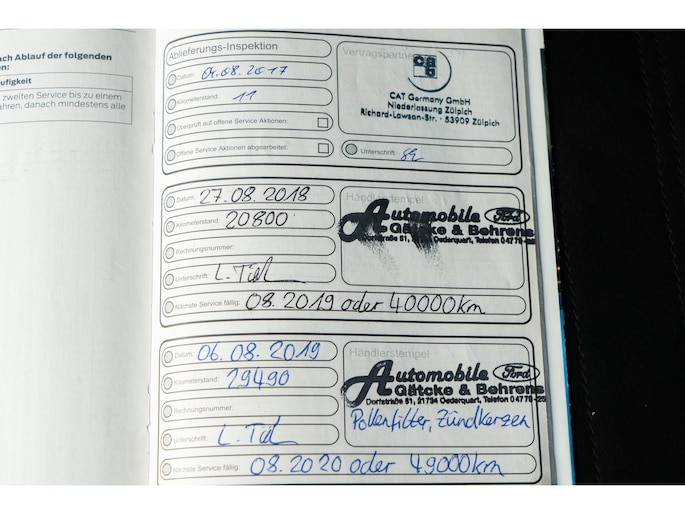 ach Ablauf der folgenden
en:
ufigkeit
zweiten Service bis zu einem
ahren, danach mindestens alle
Ablieferungs-Inspektion
Datum: 04.08.2017
Kilometerstand: 11
Überprüft auf offene Service Aktionen:
Offene Service Aktionen abgearbeitet:
Vertragspartner
CAT Germany GmbH
Niederlassung Zülpich
Richard-Lawson-Str. · 53909 Zülpich
Unterschrift:
Datum: 27.08.2018
Kilometerstand: 20800
Rechnungsnummer:
Unterschrift:
Nächste Service fällig: 08.2019 oder 40000km
Händlerstempel
Automobile Ford
Gätcke & Behrens
Dorfstraße 51, Oederquart, Telefon 04779-25
Datum: 06.08.2019
Kilometerstand: 29490
Rechnungsnummer:
Unterschrift:
Nächste Service fällig: 08.2020 oder 49000km
Händlerstempel
Automobile Ford
Gätcke & Behrens
Dorfstraße 51, 21734 Oederquart, Telefon 04779-25
Pollenfilter, Zündkerzen